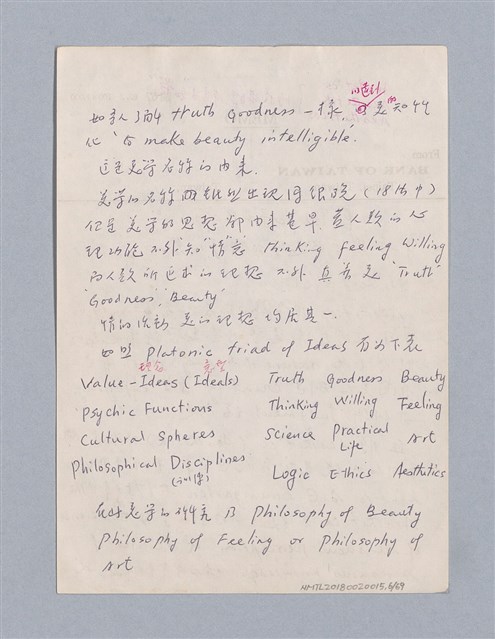 如亨人了解 truth goodness 一樣, 以達到 美的知的
化 "to make beauty intelligible".
這是美学名稱的由来.
美学的名稱 出現得很晚 (18th 中)
但是美学的思想 却由来甚早 蓋人類的心
理功能 不外 知"情"意 thinking feeling Willing
而人類所追求的理想 不外 真善美 "Truth"
"Goodness", "Beauty"
情的活動 美的理想 均居其一.
如照 Platonic triad of Ideas 有如下表
理念 意想
Value-Ideas (Ideals) Truth Goodness Beauty
Psychic Functions Thinking Willing Feeling
Cultural Spheres Science Practical Life Art
Philosophical Disciplines Logic Ethics Aesthetics
美学的 Philosophy of Beauty
Philosophy of Feeling or Philosophy of
Art
From
BANK OF TAIWAN
NMTL20180020015.6/69